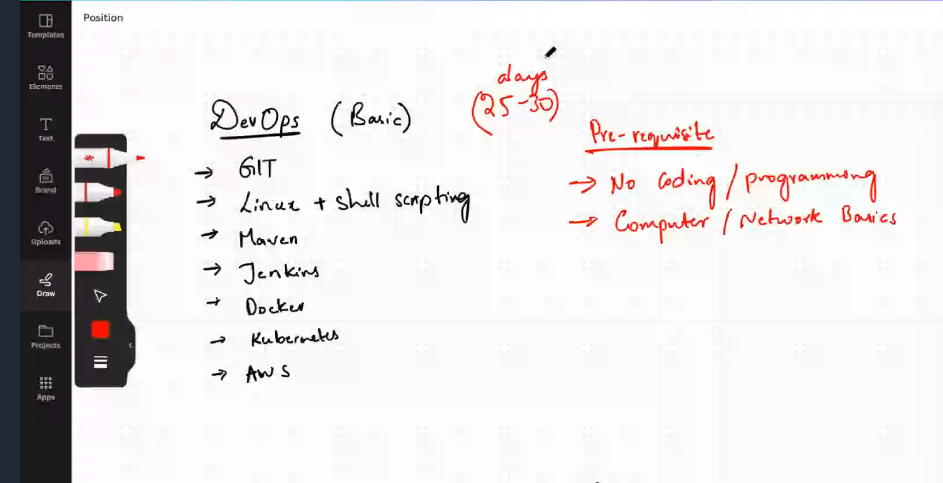 Position
Templates
Elements
Text
Brand
Uploads
Draw
Projects
Apps
DevOps (Basic)
days
(25-30)
→ GIT
→ Linux + shell scripting
→ Maven
→ Jenkins
→ Docker
→ Kubernetes
→ AWS
Pre-requisite
→ No Coding / programming
→ Computer / Network Basics